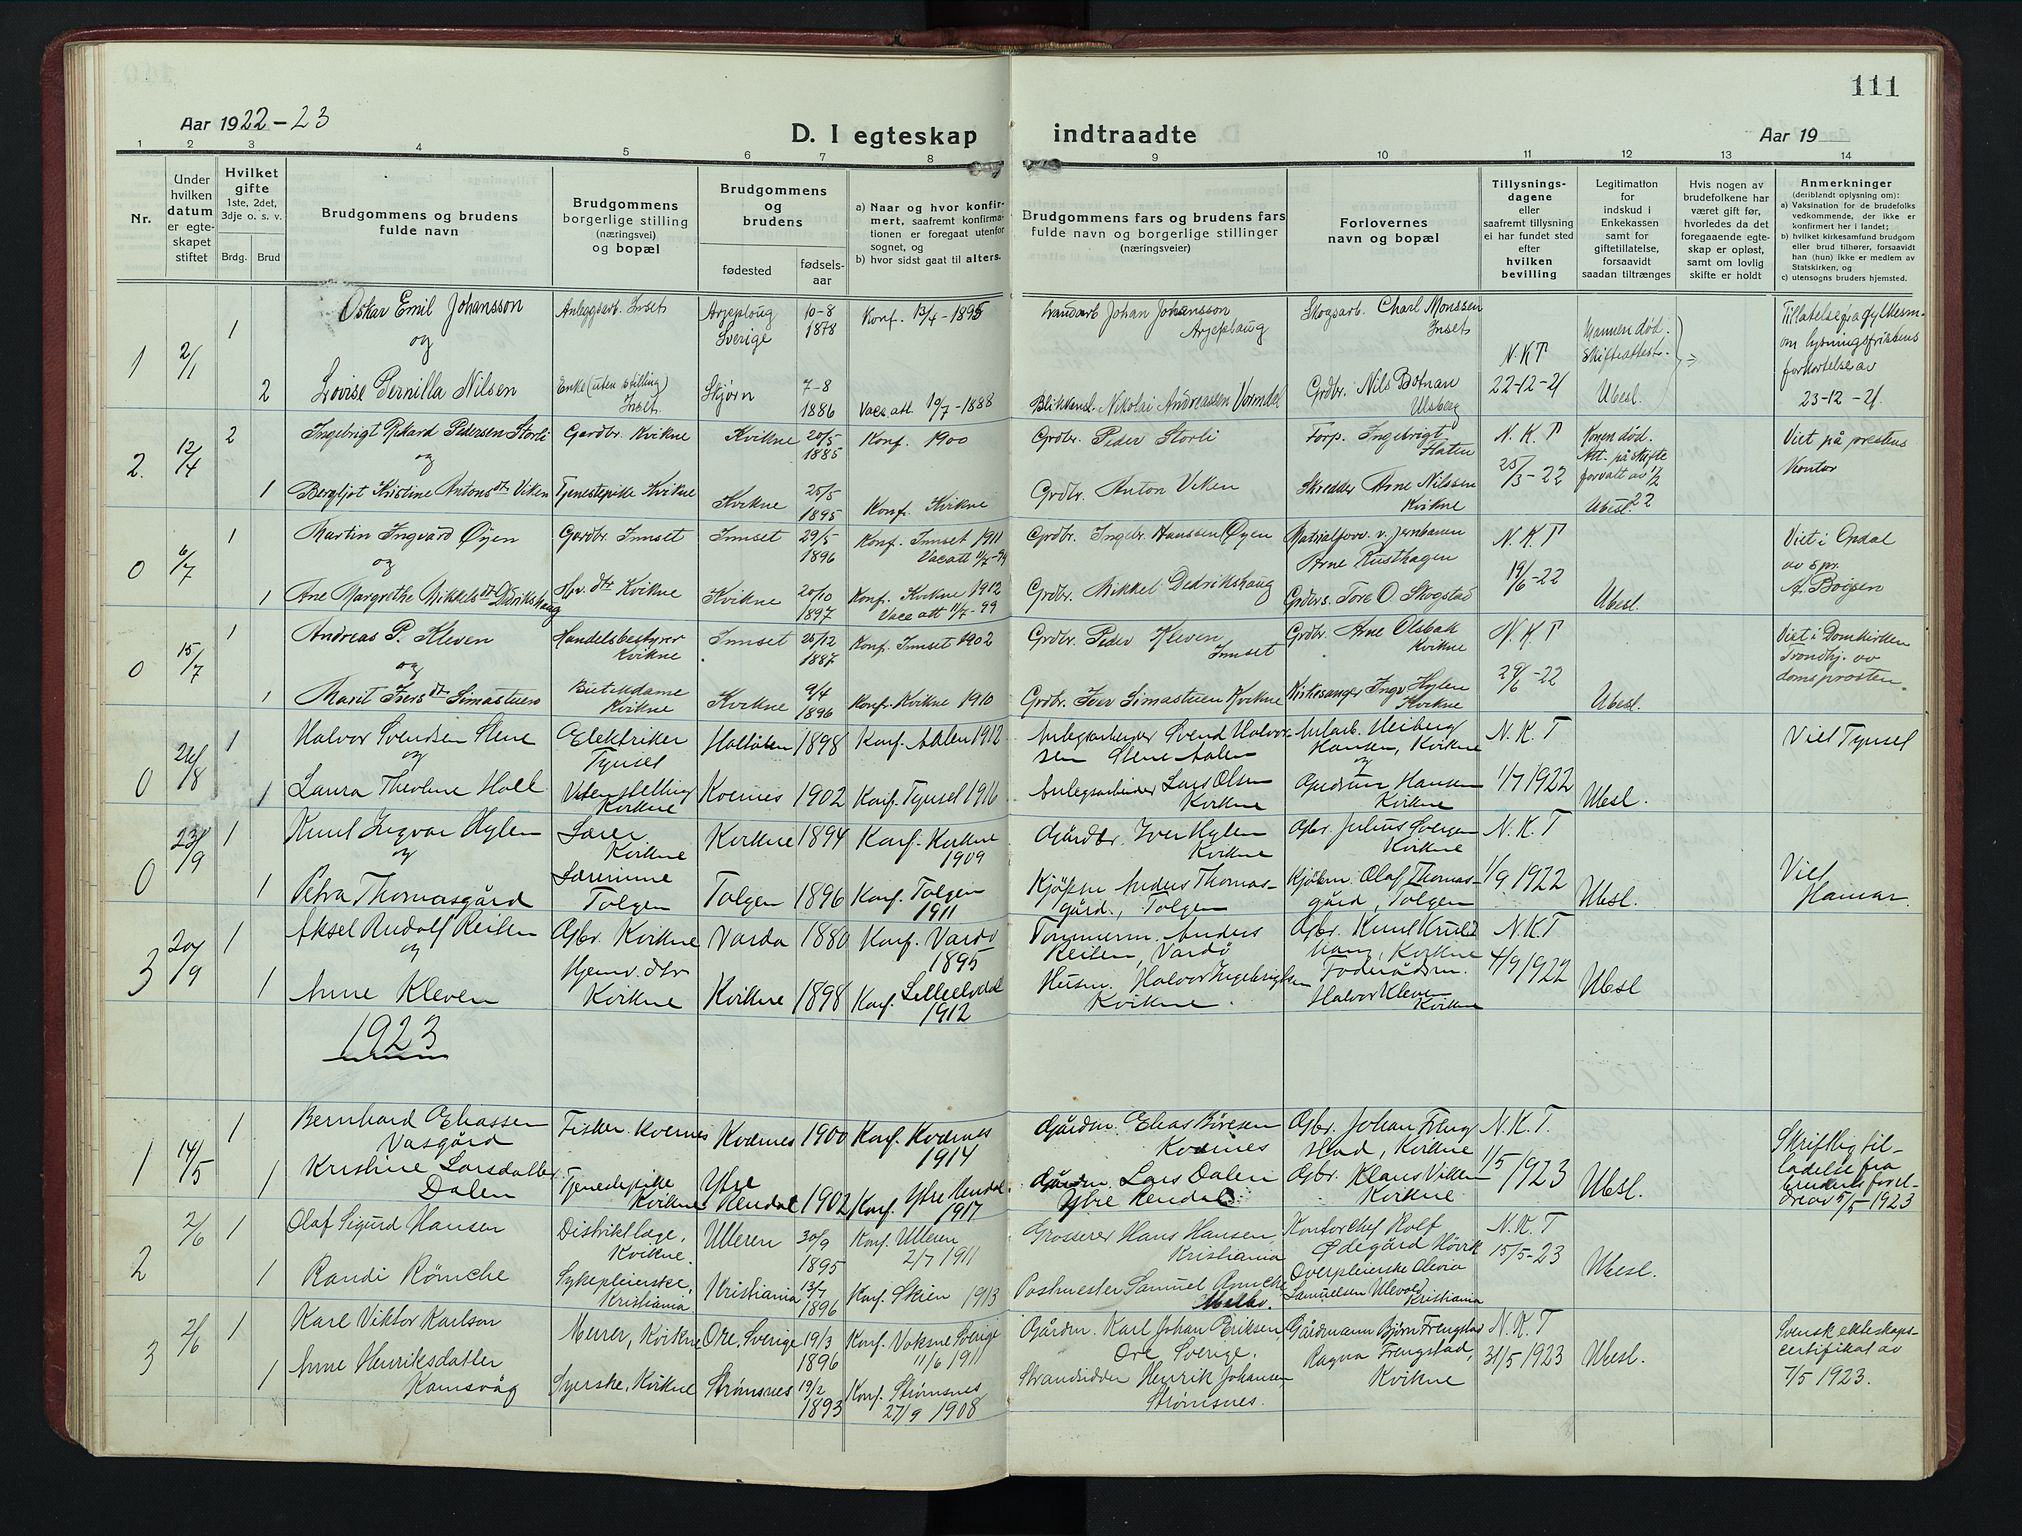 111
Aar 1922-23
D. I egteskap indtraadte
Aar 19
1 2 3 4 5 6 7 8 9 10 11 12 13 14
Nr.
Under hvilken datum er egteskapet stiftet
Hvilket gifte 1ste, 2det, 3dje o. s. v.
Brdg. Brud
Brudgommens og brudens fulde navn
Brudgommens borgerlige stilling (næringsvei) og bopæl
Brudgommens og brudens
fødested
fødselsaar
a) Naar og hvor konfirmert, saafremt konfirmationen er foregaat utenfor sognet, og
b) hvor sidst gaat til alters.
Brudgommens fars og brudens fars fulde navn og borgerlige stillinger (næringsveier)
Forlovernes navn og bopæl
Tillysningsdagene eller saafremt tillysning ei har fundet sted efter hvilken bevilling
Legitimation for indskud i Enkekassen samt for giftetillatelse, forsaavidt saadan tiltrænges
Hvis nogen av brudefolkene har været gift før, hvorledes da det foregaaende egteskap er opløst, samt om lovlig skifte er holdt
Anmerkninger (deriblandt oplysning om):
a) Vaksination for de brudefolks vedkommende, der ikke er konfirmert her i landet;
b) hvilket kirkesamfund brudgom eller brud tilhører, forsaavidt han (hun) ikke er medlem av Statskirken, og
c) utensogns bruders hjemsted.
1 2/1 1 Oskar Emil Johansson Anleggsarb. Inset Arjeploug Sverige 10-8 1878 Konf. 13/4-1895 Johan Johansson Arjeplaug Skogsarb. Charl Monssen Inset N.K.T 22-12-21 Mannen død. Skifteattest.
og
2 Lovise Pernilla Nilsen Enke (uten stilling) Inset Skjørn 7-8 1886 Vacc att 19/7-1888 Blikkensl. Nikolai Andreassen Grdbr. Nils Botnan Ulsberg Ubesl. 23-12-21
2. 12/4 2 Ingebrigt Rikard Pedersen Storli Gardbr. Kvikne Kvikne 20/5 1885 Konf. 1900 Grdbr. Peder Storli Forp. Ingebrigt N.K.T 25/3-22 Konen død. Viet på prestens kontor
og
1 Bergljot Kristine Antonsdtr Viken Tjenestepike Kvikne Kvikne 25/5 1895 Konf. Kvikne Grdbr. Anton Viken Skredder Arne Nilssen Kvikne Ubesl.
0 6/7 1 Martin Ingvard Øyen Gardbr. Innset Innset 29/5 1896 Konf. Innset 1911 Grdbr. Ingebr. Hanssen Øyen Arne Rusthagen N.K.T 19/6-22 Viet i Opdal av spr. A. Boysen
og
1 Ane Margrethe Mikkelsdtr Didrikshaug Hv. dtr Kvikne Kvikne 20/10 1897 Konf. Kvikne 1912 Vacc att 11/7-99 Grdbr. Mikkel Dedrikshaug Tore O. Skogstad Ubesl.
0 15/7 1 Andreas P. Kleven Handelsbestyrer Kvikne Innset 25/12 1887 Konf. Innset 1902 Grdbr. Peder Kleven Innset Grdbr. Arne Ulsbak Kvikne N.K.T 29/6-22 Viet i Domkirken Trondhj. av domprosten.
og
1 Marit Iversdtr Simastuen Butikdame Kvikne Kvikne 9/4 1896 Konf. Kvikne 1910 Grdbr. Iver Simastuen Kvikne Kirkesanger Ingv. Hylen Kvikne Ubesl.
0 26/8 1 Halvor Svendsen Stene Elektriker Tynset Holtålen 1898 Konf. Aalen 1912 Anlegsarbeider Svend Halvorsen Stene Aalen Hansen, Kvikne N.K.T 1/7 1922 Viet Tynset
og
1 Laura Theoline Moll Uten stelling Kvikne Kvernes 1902 Konf. Tynset 1916 Anlegsarbeider Lars Olsen Kvikne Gudrun Hansen Kvikne Ubesl.
0 23/9 1 Knut Ingvar Hylen Lærer Kvikne Kvikne 1894 Konf. Kvikne 1909 Gårdbr. Iver Hylen Kvikne Gbr. Julius Kvikne N.K.T 1/9 1922 Viet Hamar.
og
1 Petra Thomasgård Lærerinne Tolgen Tolgen 1896 Konf. Tolgen 1911 Kjøpm Anders Thomasgård, Tolgen Kjøbm. Olaf Thomasgård, Tolgen Ubesl.
3 20/9 1 Aksel Rudolf Reilen Gbr. Kvikne Vardø 1880 Konf. Vardø 1895 Tømmerm. Anders Reilen, Vardø Gbr. Knut Kvikne N.K.T 4/9 1922
og
1 Anne Kleven Hjemv. dtr Kvikne Kvikne 1898 Konf. Lilleelvdal 1912 Husm. Halvor Ingebrigtsen Kvikne. Foderådsm. Halvor Kleven Kvikne Ubesl
1923
1 14/5 1 Bernhard Eliassen Vasgård Fisker Kvernes 1900 Konf. 1914 Gårdm. Elias Børesen Gbr. Johan Frengstad, Kvikne N.K.T. 1/5 1923 Skriftlig tilladelse fra brudens foreldre av 5/5-1923
1 Kristine Larsdatter Dalen Tjenestepike Kvikne Ytre Rendal 1902 Konf. Ytre Rendal 1917 Gårdm. Lars Dalen Ytre Rendal Gbr. Klaus Vikken Kvikne Ubesl.
2 2/6 1 Olaf Sigurd Hansen Distriktslæge, Kvikne. Ulleren 30/9 1895 Konf. Ulleren 2/7 1911 Grosserer Hans Hansen, Kristiania Kontorchef Rolf Ødegård Høvik N.K.T 15/5-23
1 Randi Rømcke Sykepleierske, Kristiania Kristiania 13/7 1896 Konf. Skien 1913 Postmester Samuel Rømcke Overpleierske Olevia Samuelsen Ulevold Kristiania Ubesl.
3 2/6 1 Karl Viktor Karlson Murer, Kvikne Ore, Sverige 19/3 1896 Konf. Voksne Sverige 11/6 1911 Gårdm. Karl Johan Eriksen, Ore Sverige. Gårdmann Bjørn Frengstad N.K.T 31/5 1923 Svensk ekteskapscertifikat av 7/5 1923.
1 Anne Henriksdatter Ramsvåg Syerske, Kvikne Strømsnes 19/2 1893 Konf. Strømsnes 27/9 1908 Strandsidder Henrik Johansen, Strømsnes. Ragna Frengstad, Kvikne Ubesl.